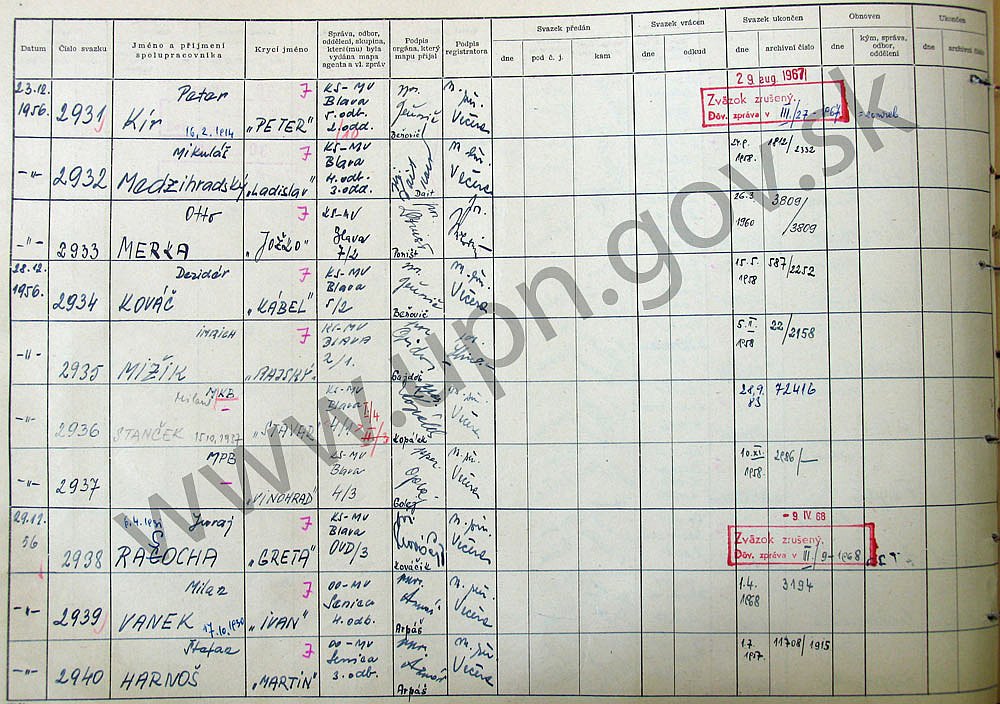 Datum
Číslo svazku
Jméno a příjmení
spolupracovníka
Krycí jméno
Správa, odbor,
oddělení, skupina,
které(mu) byla
vydána mapa
agenta a vl. zpráv
Podpis
orgána, který
mapu přijal
Podpis
registratora
Svazek předán
dne
pod č. j.
kam
Svazek vrácen
dne
odkud
Svazek ukončen
dne
archivní číslo
Obnoven
dne
kým, správa,
odbor,
oddělení
Ukončen
dne
archivní číslo
23.12.
1956.
2931
Peter
Kír
16.2.1914
7
„PETER"
KS-MV
Blava
5. odb.
2. odd.
Beňovič
Večera
29 aug. 1967
Zväzok zrušený.
Dův. zpráva v III/27-1967
-"-
2932
Mikuláš
Medzihradský
7
„Ladislav"
KS-MV
Blava
4. odb.
3. odd.
Dait
Večera
1958.
1812/2332
-"-
2933
Otto
MERKA
7
„JOŽKO"
KS-MV
Blava
7/2
Poništ
26.3.
1960
3809
/3809
28.12.
1956.
2934
Dezidér
KOVÁČ
7
„KÁBEL"
KS-MV
Blava
5/2
Beňovič
Večera
15.5.
1958
587/2252
-"-
2935
IMRICH
MIŽÍK
7
„RAJSKÝ"
KS-MV
BLAVA
2/1.
Gajdoš
5.II.
1958
22/2158
-"-
2936
Milan
MKB
STANČEK
15.10.1927
KS-MV
Blava
Kopálek
Večera
28.9.
83
72416
-"-
2937
MPB
„VINOHRAD"
KS-MV
Blava
4/3
Golej
Večera
10.XI.
1958.
2986/-
29.12.
56
2938
Juraj
RAGOCHA
7
„GRETA"
KS-MV
Blava
OVD/3
Kováčik
Večera
- 9. IV. 68
Zväzok zrušený.
Dův. zpráva v III./9-1968
-"-
2939
Milan
VANEK
17.10.1930
7
„IVAN"
OO-MV
Senica
4. odb.
Arpáš
Večera
1.4.
1968
3194
-"-
2940
Štefan
HARNOŠ
7
„MARTIN"
OO-MV
Senica
3. odb.
Arpáš
Večera
1.7.
1957.
11708/1915
www.upn.gov.sk